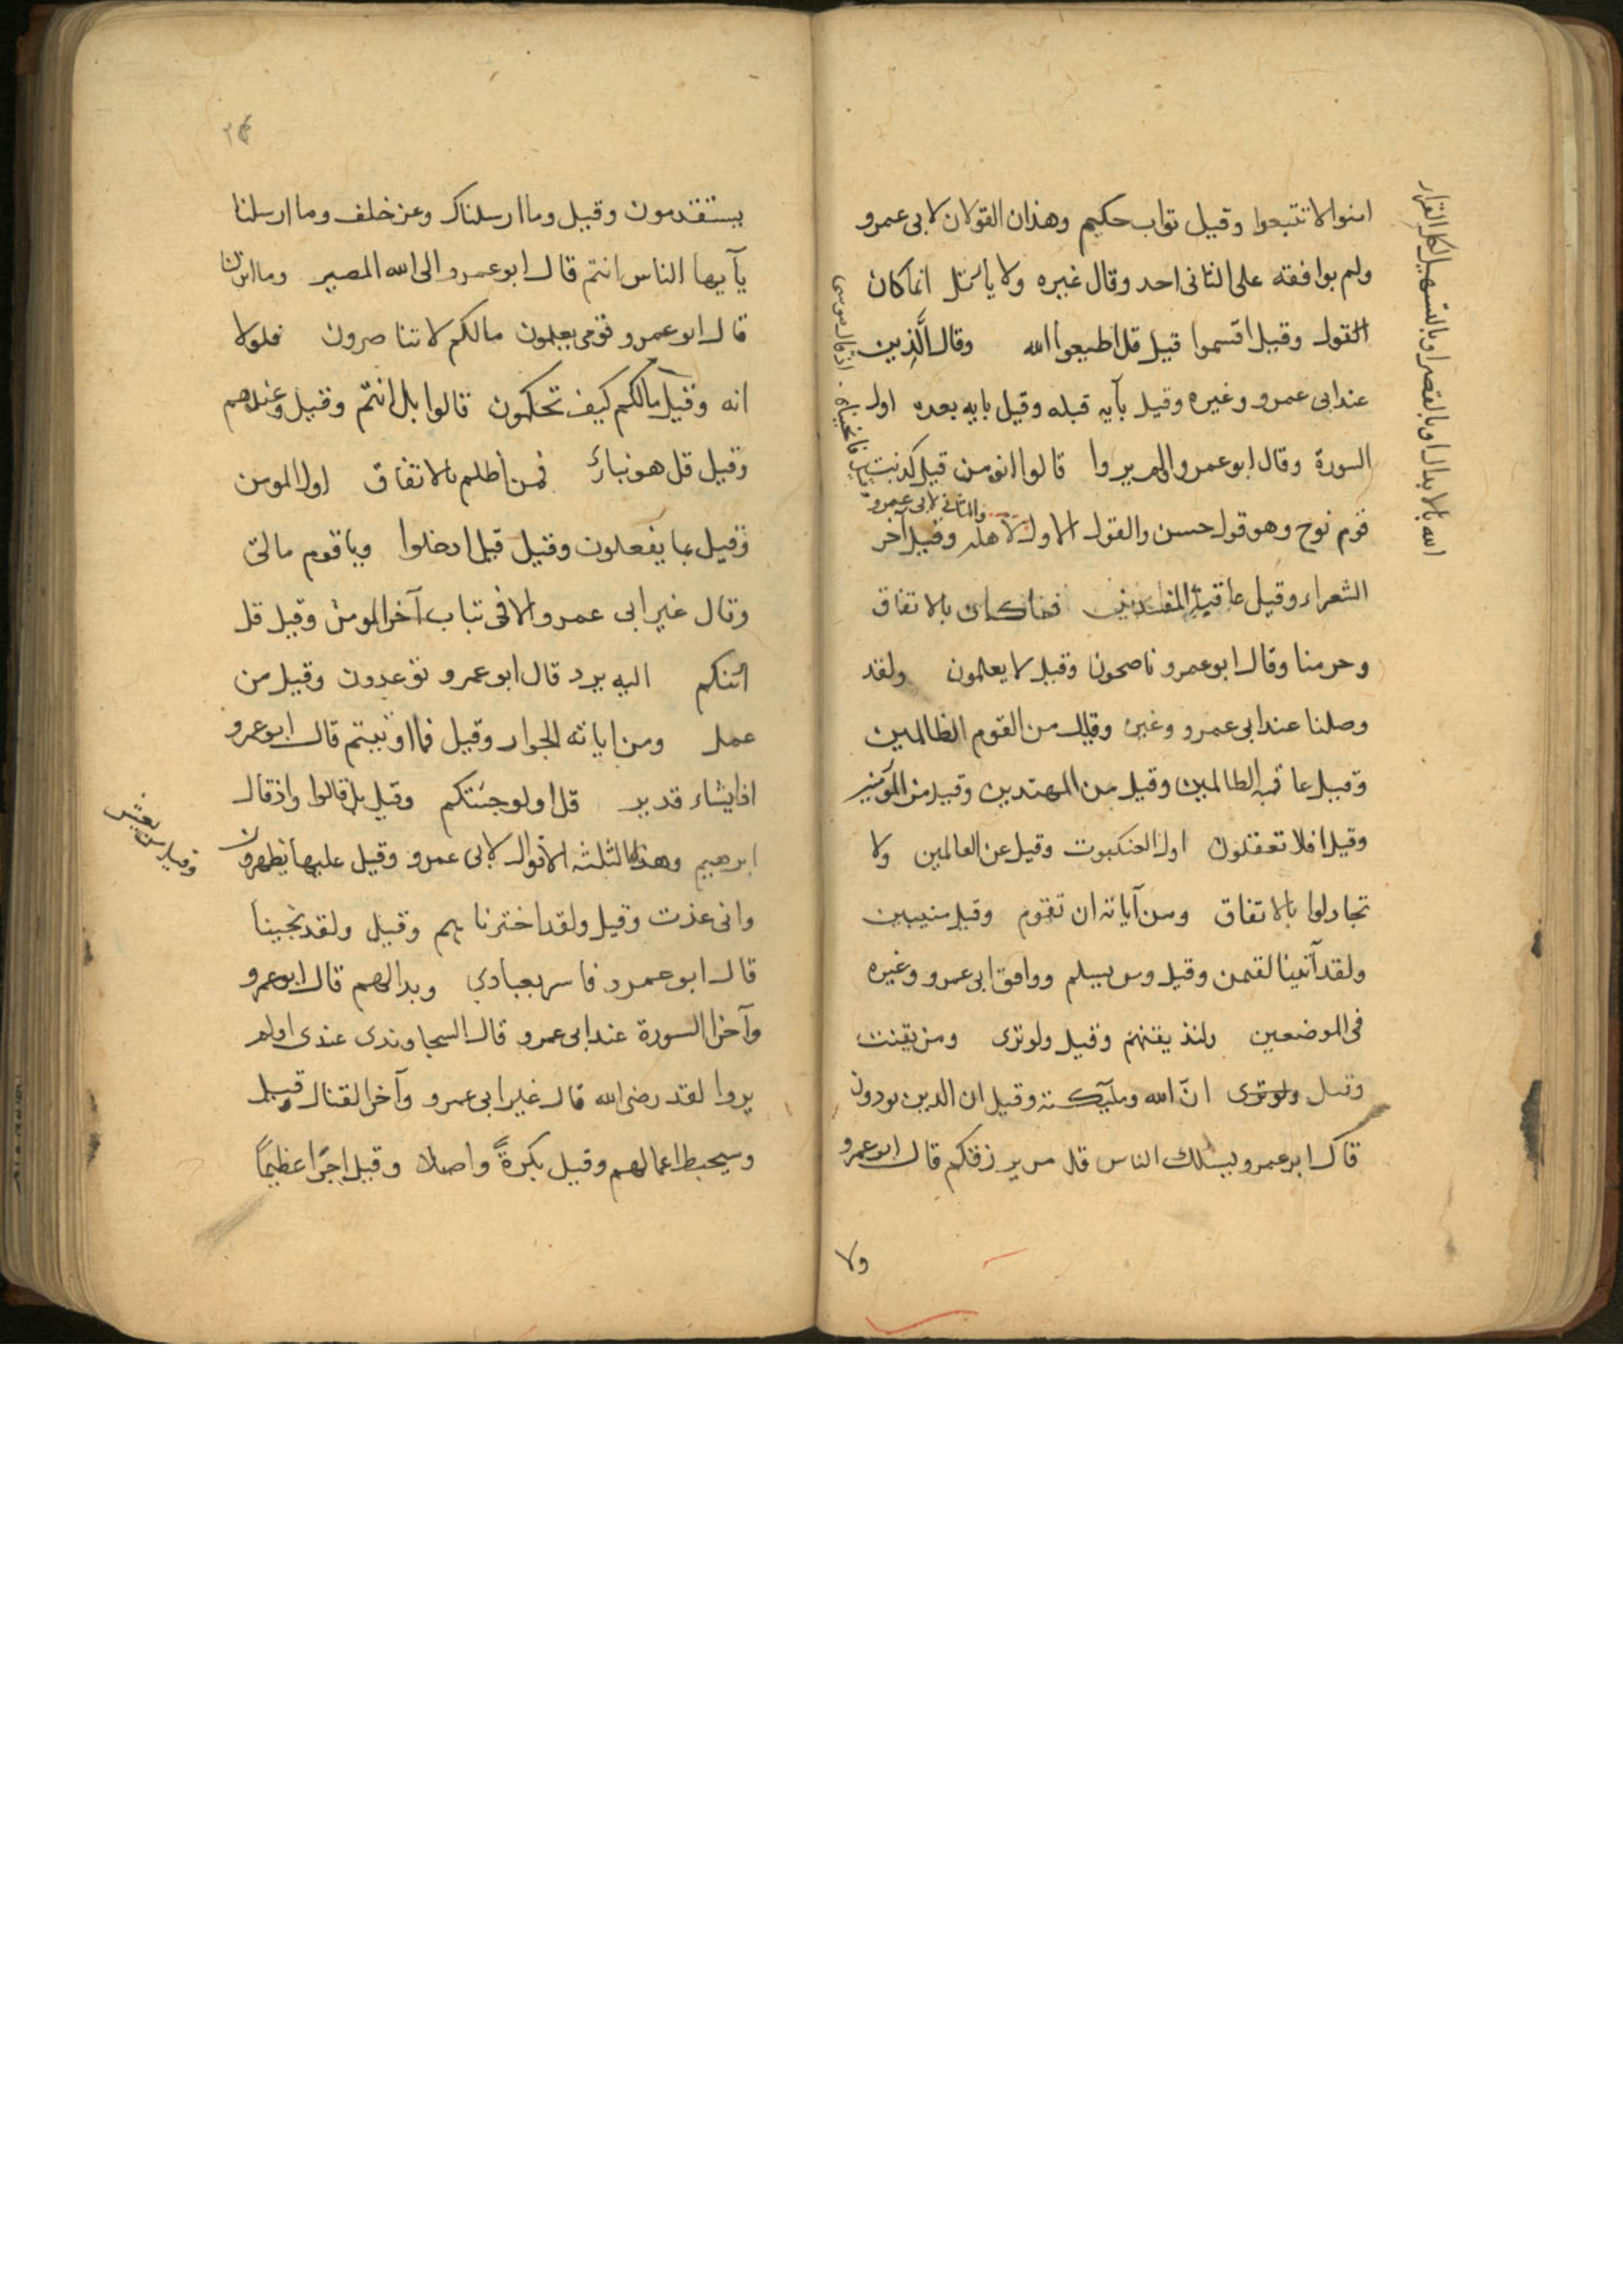 امنوا لا تتبعوا وقيل تواب حكيم وهذان القولان لابى عمرو
ولم يوافقه على الثانى احد وقال غيره ولا ياتل انما كان
القول وقيل اقسموا قيل قل اطيعوا الله وقال الذين
عند ابى عمرو وغيره وقيل بآيه قبله وقيل بايه بعده اول
السورة وقال ابو عمرو الم يروا قالوا انومن قيل كذبت
والثانى لابى عمرو
قوم نوح وهو قول حسن والقول الاول لاهله وقيل آخر
الشعراء وقيل عاقبة المفسدين فما كان بالاتفاق
وحرمنا وقال ابو عمرو ناصحون وقيل لا يعلمون ولقد
وصلنا عند ابى عمرو وغيره وقيل من القوم الظالمين
وقيل عاقبة الظالمين وقيل من المهتدين وقيل من المؤمنين
وقيل افلا تعقلون اول العنكبوت وقيل عن العالمين ولا
تجادلوا بالاتفاق ومن آياته ان تقوم وقيل منيبين
ولقد آتينا لقمن وقيل ومن يسلم ووافق ابى عمرو وغيره
فى الموضعين ولنذيقنهم وقيل ولو ترى ومن يقنت
وقيل ولو ترى ان الله وملئكته وقيل ان الذين يوذون
قال ابو عمرو يسئلك الناس قل من يرزقكم قال ابو عمرو
ولا
الله بالابدال وبالقصر وبالتسهيل لكل القراء
اذ قال موسى
فانجيناه
يستقدمون وقيل وما ارسلناك وعن خلف وما ارسلنا
يآيها الناس انتم قال ابو عمرو الى الله المصير وما انزلنا
قال ابو عمرو قومى يعلمون مالكم لا تناصرون فلولا
انه وقيل مالكم كيف تحكمون قالوا بل انتم وقيل وعندهم
وقيل قل هو نبأ فمن اظلم بالاتفاق اول المومن
وقيل بما يفعلون وقيل قيل ادخلوا ويا قوم مالى
وقال غير ابى عمرو الا فى تباب آخر المومن وقيل قل
ائنكم اليه يرد قال ابو عمرو توعدون وقيل من
عمل ومن اياته الجوار وقيل فما اوتيتم قال ابو عمرو
اذا يشاء قدير قل اولو جئتكم وقيل بل قالوا واذ قال
ابرهيم وهذه الثلثه الاقوال لابى عمرو وقيل عليها يظهرون
وقيل من يعش
وانى عذت وقيل ولقد اخترنا هم وقيل ولقد نجينا
قال ابو عمرو فاسر بعبادي وبدا لهم قال ابو عمرو
وآخر السورة عند ابى عمرو قال السجاوندى عندى اولم
يروا لقد رضى الله قال غير ابى عمرو وآخر القتال قيل
وسيحبط اعمالهم وقيل بكرةً واصيلا وقيل اجرًا عظيمًا